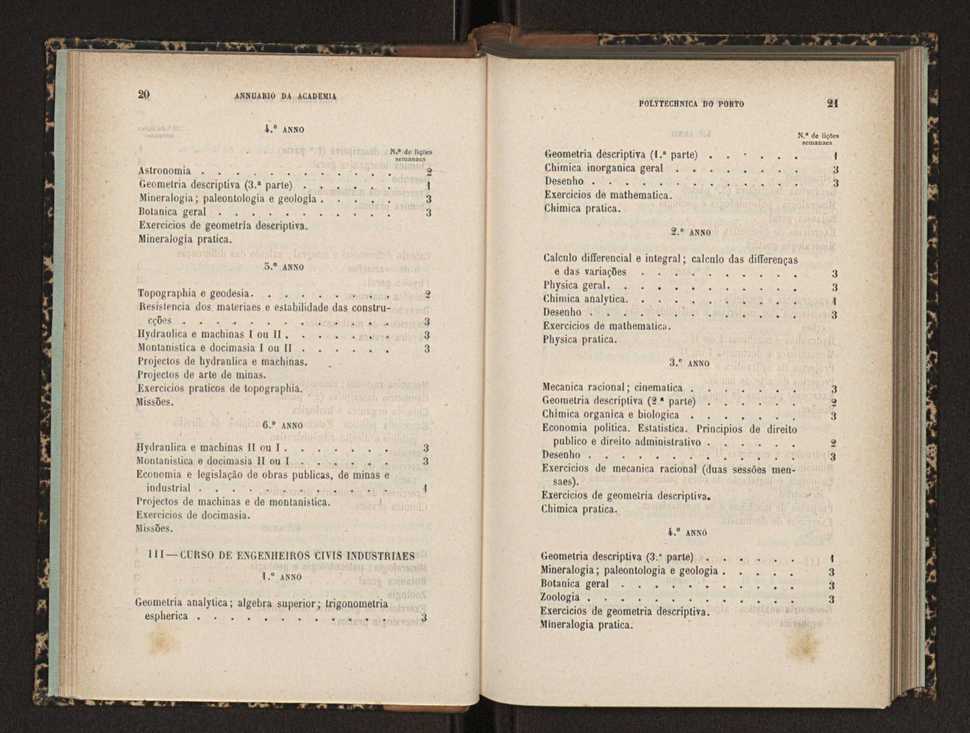 20 ANNUARIO DA ACADEMIA
4.º ANNO
N.º de lições
semanaes
Astronomia . . . . . . . . . . . . 2
Geometria descriptiva (3.ª parte) . . . . . . 1
Mineralogia; paleontologia e geologia . . . . . 3
Botanica geral . . . . . . . . . . . 3
Exercicios de geometria descriptiva.
Mineralogia pratica.
5.º ANNO
Topographia e geodesia. . . . . . . . . 2
Resistencia dos materiaes e estabilidade das constru-
cções . . . . . . . . . . . . . 3
Hydraulica e machinas I ou II . . . . . . . 3
Montanistica e docimasia I ou II . . . . . . 3
Projectos de hydraulica e machinas.
Projectos de arte de minas.
Exercicios praticos de topographia.
Missões.
6.º ANNO
Hydraulica e machinas II ou I . . . . . . . 3
Montanistica e docimasia II ou I . . . . . . 3
Economia e legislação de obras publicas, de minas e
industrial . . . . . . . . . . . . 1
Projectos de machinas e de montanistica.
Exercicios de docimasia.
Missões.
III — CURSO DE ENGENHEIROS CIVIS INDUSTRIAES
1.º ANNO
Geometria analytica; algebra superior; trigonometria
espherica . . . . . . . . . . . . 3
POLYTECHNICA DO PORTO 21
N.º de lições
semanaes
Geometria descriptiva (1.ª parte) . . . . . . 1
Chimica inorganica geral . . . . . . . . 3
Desenho . . . . . . . . . . . . 3
Exercicios de mathematica.
Chimica pratica.
2.º ANNO
Calculo differencial e integral; calculo das differenças
e das variações . . . . . . . . . . 3
Physica geral. . . . . . . . . . . . 3
Chimica analytica. . . . . . . . . . . 1
Desenho . . . . . . . . . . . . 3
Exercicios de mathematica.
Physica pratica.
3.º ANNO
Mecanica racional; cinematica . . . . . . . 3
Geometria descriptiva (2.ª parte) . . . . . . 2
Chimica organica e biologica . . . . . . . 3
Economia politica. Estatistica. Principios de direito
publico e direito administrativo . . . . . . 2
Desenho . . . . . . . . . . . . 3
Exercicios de mecanica racional (duas sessões men-
saes).
Exercicios de geometria descriptiva.
Chimica pratica.
4.º ANNO
Geometria descriptiva (3.ª parte) . . . . . . 1
Mineralogia; paleontologia e geologia . . . . . 3
Botanica geral . . . . . . . . . . . 3
Zoologia . . . . . . . . . . . . 3
Exercicios de geometria descriptiva.
Mineralogia pratica.